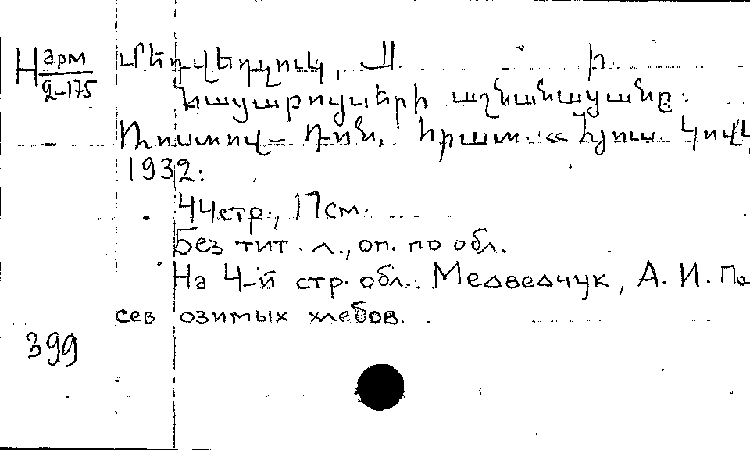 Н арм 2-175
Մեդվեդչուկ, Ա. Ի.
Հացաբույսերի աշնանացանը.
Ռոստով-Դոն, հրատ. «Նյուս Կովկ
1932:
44 стр., 17 см.
Без тит. л., оп. по обл.
На 4-й стр. обл.: Медведчук, А. И. По
сев озимых хлебов.
399